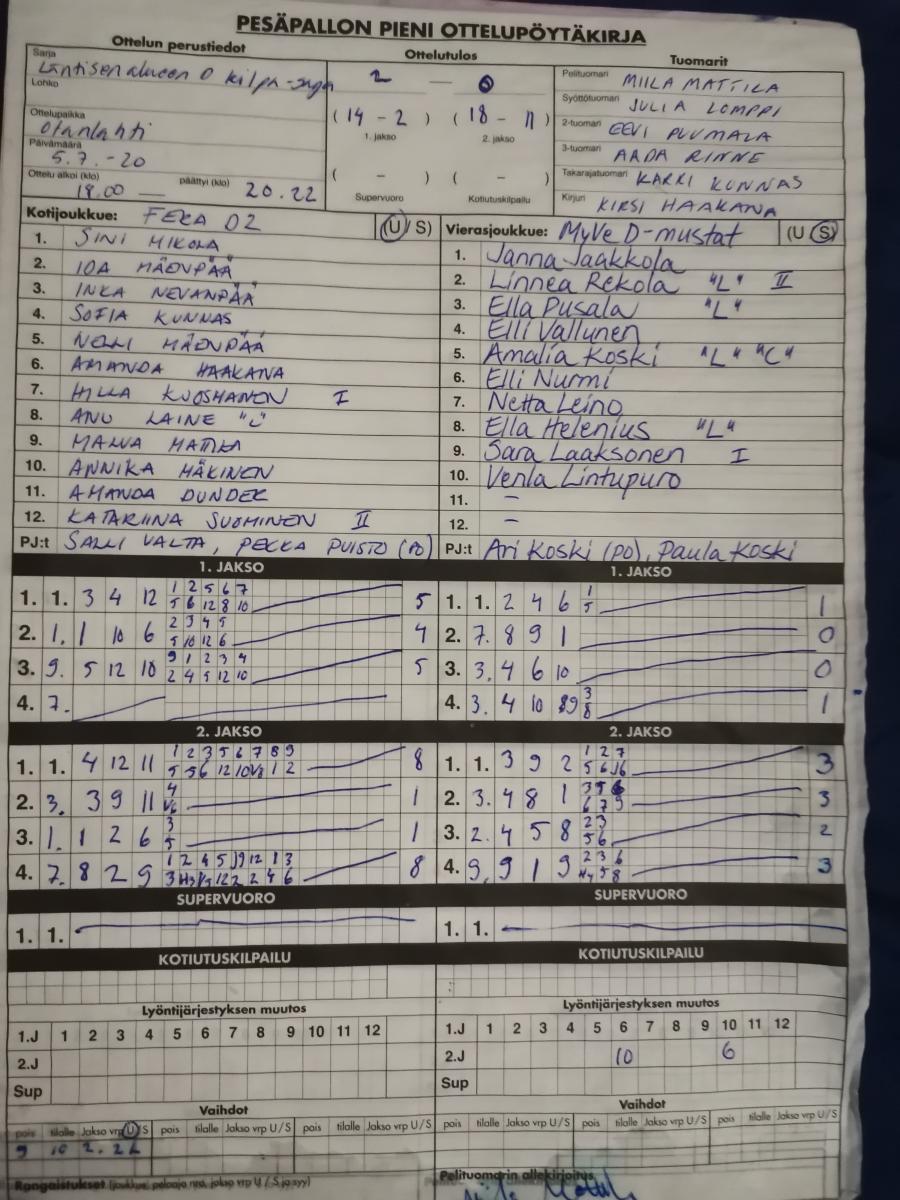 PESÄPALLON PIENI OTTELUPÖYTÄKIRJA
Ottelun perustiedot
Sarja
Läntisen alueen D kilpa-sarja
Lohko
Ottelupaikka
Otanlahti
Päivämäärä
5.7.-20
Ottelu alkoi (klo) 18.00 päättyi (klo) 20.22
Ottelutulos
2 — 0
(14 - 2) (18 - 11)
1. jakso 2. jakso
( - ) ( - )
Supervuoro Kotiutuskilpailu
Tuomarit
Pelituomari MIILA MATTILA
Syöttötuomari JULIA LOMPPI
2-tuomari EEVI PUUMALA
3-tuomari AADA RINNE
Takarajatuomari KARRI KUNNAS
Kirjuri KIRSI HAAKANA
Kotijoukkue: FERA D2 (U/S)
1. SINI MIKOLA
2. IDA MÄENPÄÄ
3. INKA NEVANPÄÄ
4. SOFIA KUNNAS
5. NELLI MÄENPÄÄ
6. AMANDA HAAKANA
7. HILLA KUOSMANEN I
8. ANU LAINE "C"
9. MALVA MATTILA
10. ANNIKA MÄKINEN
11. AMANDA DUNDER
12. KATARIINA SUOMINEN II
PJ:t SALLI VALTA, PEKKA PUISTO (PO)
Vierasjoukkue: MyVe D-mustat (U/S)
1. Janna Jaakkola
2. Linnea Rekola "L" II
3. Ella Pusala "L"
4. Elli Vallunen
5. Amalia Koski "L" "C"
6. Elli Nurmi
7. Netta Leino
8. Ella Helenius "L"
9. Sara Laaksonen I
10. Venla Lintupuro
11. -
12. -
PJ:t Ari Koski (PO), Paula Koski
1. JAKSO
1. 1. 3 4 12 1 2 5 6 7 5
5 6 12 8 10
2. 1. 1 10 6 2 3 4 5 4
5 10 12 6
3. 9. 5 12 10 9 1 2 3 4 5
2 4 5 12 10
4. 7.
1. JAKSO
1. 1. 2 4 6 1 1
5
2. 7. 8 9 1 0
3. 3. 4 6 10 0
4. 3. 4 10 9 3 1
8
2. JAKSO
1. 1. 4 12 11 1 2 3 5 6 7 8 9 8
2. 3. 3 9 11 4 1
3. 1. 1 2 6 3 1
5
4. 7. 8 2 9 8
2. JAKSO
1. 1. 3 9 2 1 2 7 3
2. 3. 4 8 1 3
6 7 9
3. 2. 4 5 8 2 3 2
5 6
4. 9. 9 1 9 2 3 6 3
SUPERVUORO
1. 1.
SUPERVUORO
1. 1.
KOTIUTUSKILPAILU
KOTIUTUSKILPAILU
Lyöntijärjestyksen muutos
1.J 1 2 3 4 5 6 7 8 9 10 11 12
2.J
Sup
Lyöntijärjestyksen muutos
1.J 1 2 3 4 5 6 7 8 9 10 11 12
2.J 10 6
Sup
Vaihdot
pois tilalle Jakso vrp U/S pois tilalle Jakso vrp U/S pois tilalle Jakso vrp U/S
9 10 2.
Vaihdot
pois tilalle Jakso vrp U/S pois tilalle Jakso vrp U/S pois tilalle Jakso vrp U/S
Rangaistukset (joukkue, pelaaja nro, jakso vrp U / S ja syy)
Pelituomarin allekirjoitus